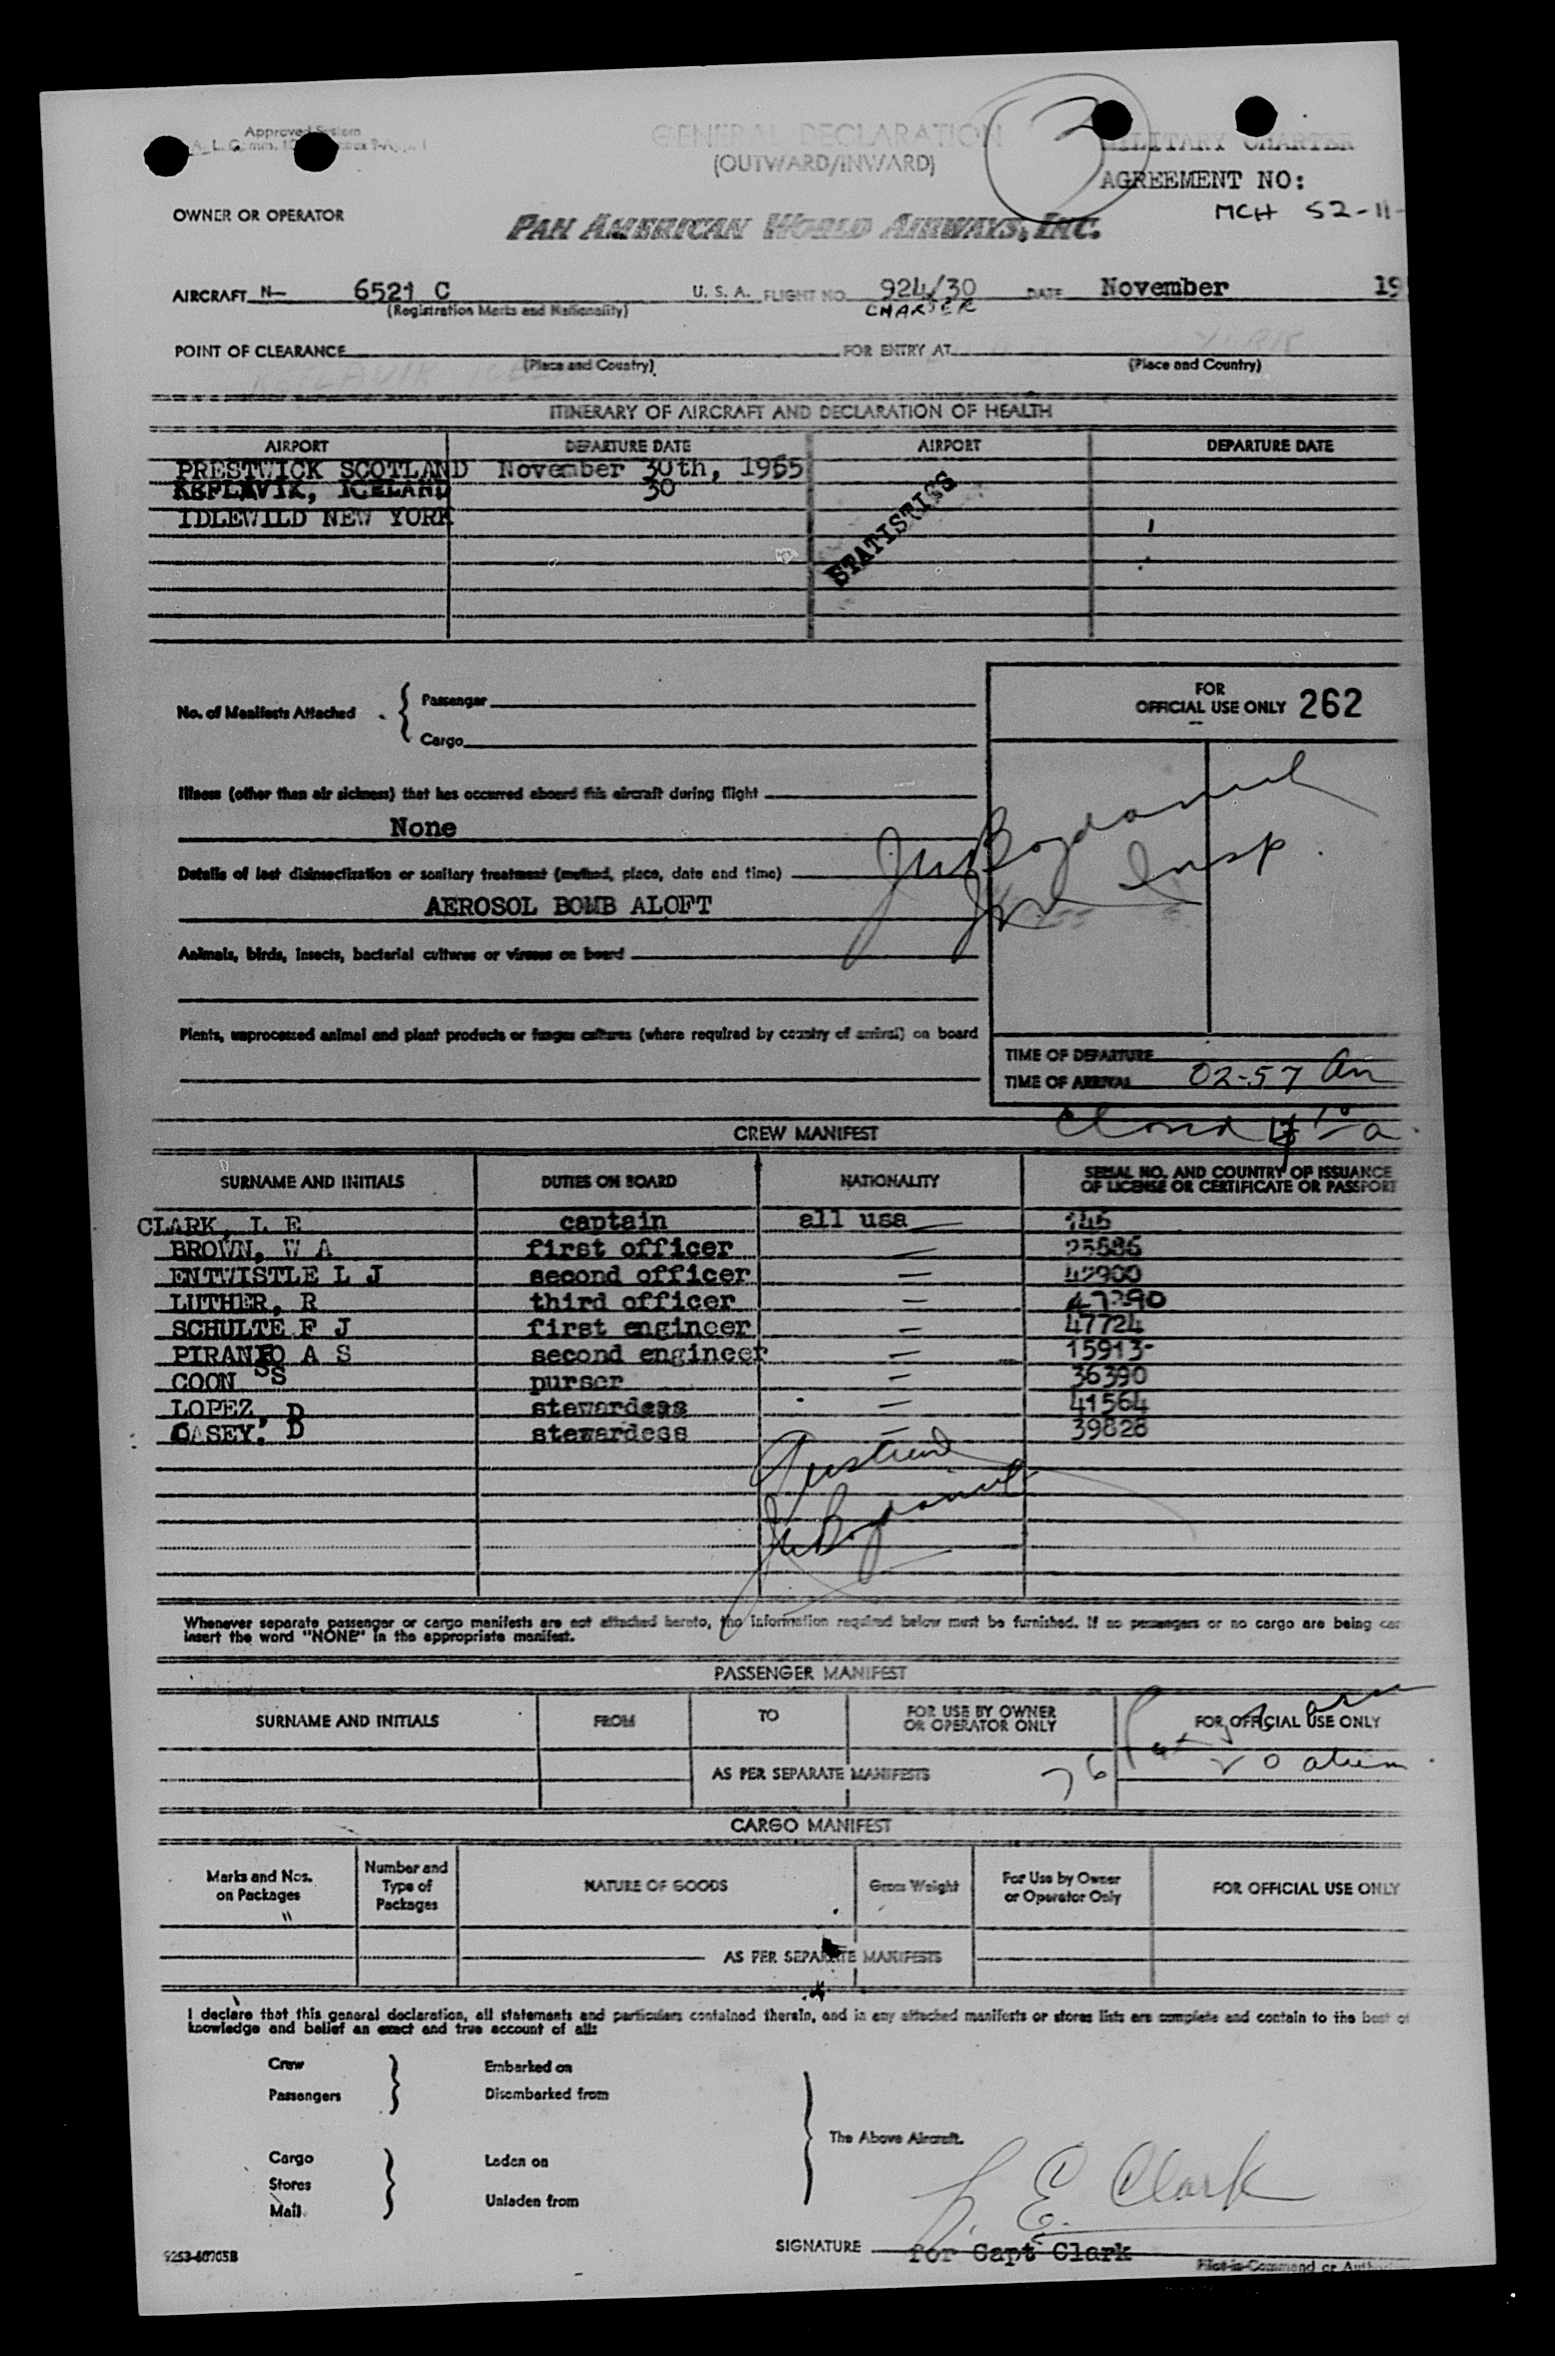 Approved System
GENERAL DECLARATION
(OUTWARD/INWARD)
3
MILITARY CHARTER
AGREEMENT NO:
MCH 52-11-
OWNER OR OPERATOR
PAN AMERICAN WORLD AIRWAYS, INC.
AIRCRAFT N- 6521 C U. S. A. FLIGHT NO. 924/30 DATE November 19
(Registration Marks and Nationality) CHARTER
POINT OF CLEARANCE FOR ENTRY AT YORK
KEFLAVIK (Place and Country) (Place and Country)
ITINERARY OF AIRCRAFT AND DECLARATION OF HEALTH
AIRPORT DEPARTURE DATE AIRPORT DEPARTURE DATE
PRESTWICK SCOTLAND November 30th, 1955
KEFLAVIK, ICELAND 30
IDLEWILD NEW YORK
STATISTICS
No. of Manifests Attached { Passenger
Cargo
FOR
OFFICIAL USE ONLY 262
Illness (other than air sickness) that has occurred aboard this aircraft during flight
None
Details of last disinsectization or sanitary treatment (method, place, date and time)
Insp.
AEROSOL BOMB ALOFT
Animals, birds, insects, bacterial cultures or viruses on board
Plants, unprocessed animal and plant products or fungus cultures (where required by country of arrival) on board
TIME OF DEPARTURE
TIME OF ARRIVAL 02-57 Am
CREW MANIFEST
SURNAME AND INITIALS DUTIES ON BOARD NATIONALITY SERIAL NO. AND COUNTRY OF ISSUANCE
OF LICENSE OR CERTIFICATE OR PASSPORT
CLARK, L E captain all usa 146
BROWN, W A first officer — 25686
ENTWISTLE L J second officer — 42900
LUTHER, R third officer — 47290
SCHULTE F J first engineer — 47724
PIRANIO A S second engineer — 15913-
COON SS purser — 36390
LOPEZ, D stewardess — 41564
CASEY, D stewardess — 39828
Whenever separate passenger or cargo manifests are not attached hereto, the information required below must be furnished. If no passengers or no cargo are being car
insert the word "NONE" in the appropriate manifest.
PASSENGER MANIFEST
SURNAME AND INITIALS FROM TO FOR USE BY OWNER
OR OPERATOR ONLY FOR OFFICIAL USE ONLY
AS PER SEPARATE MANIFESTS 76
CARGO MANIFEST
Marks and Nos.
on Packages Number and
Type of
Packages NATURE OF GOODS Gross Weight For Use by Owner
or Operator Only FOR OFFICIAL USE ONLY
AS PER SEPARATE MANIFESTS
I declare that this general declaration, all statements and particulars contained therein, and in any attached manifests or stores lists are complete and contain to the best of
knowledge and belief an exact and true account of all:
Crew Embarked on
Passengers Disembarked from
The Above Aircraft.
Cargo Laden on
Stores
Mail Unladen from
L. E. Clark
SIGNATURE for Capt Clark
Pilot-in-Command or Auth
9253-60705B